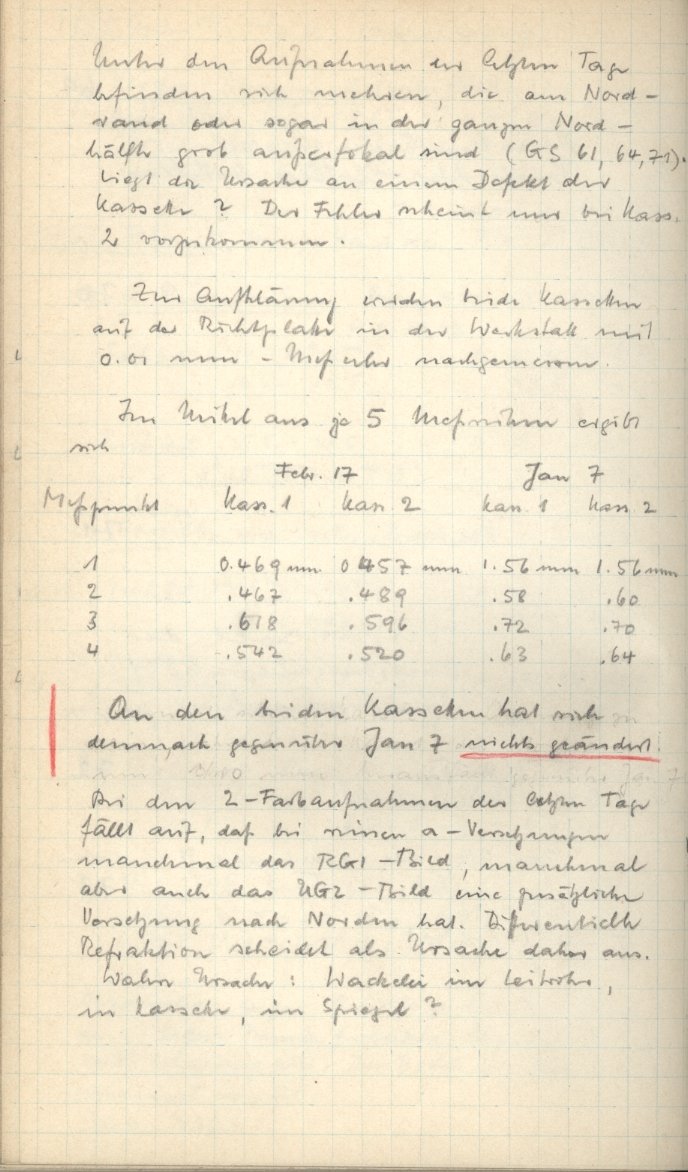 Unter den Aufnahmen der letzten Tage
befinden sich mehrere, die am Nord-
rand oder sogar in der ganzen Nord-
hälfte grob außerfokal sind (GS 61, 64, 71).
Liegt die Ursache an einem Defekt der
Kassette? Der Fehler scheint nur bei Kass.
2 vorzukommen.
Zur Aufklärung wurden beide Kassetten
auf der Richtplatte in der Werkstatt mit
0.01 mm - Meßuhr nachgemessen.
Im Mittel aus je 5 Meßreihen ergibt
sich
Febr. 17 Jan 7
Meßpunkt Kass. 1 Kass 2 Kass 1 Kass 2
1 0.469 mm 0.457 mm 1.56 mm 1.56 mm
2 .467 .489 .58 .60
3 .618 .596 .72 .70
4 .542 .520 .63 .64
An den beiden Kassetten hat sich
demnach gegenüber Jan 7 nichts geändert.
Bei den 2-Farbaufnahmen der letzten Tage
fällt auf, daß bei reinen α-Versetzungen
manchmal das RG1-Bild, manchmal
aber auch das UG2-Bild eine zusätzliche
Versetzung nach Norden hat. Differentielle
Refraktion scheidet als Ursache daher aus.
Wahre Ursache: Wackelei im Leitrohr,
in Kassette, im Spiegel?